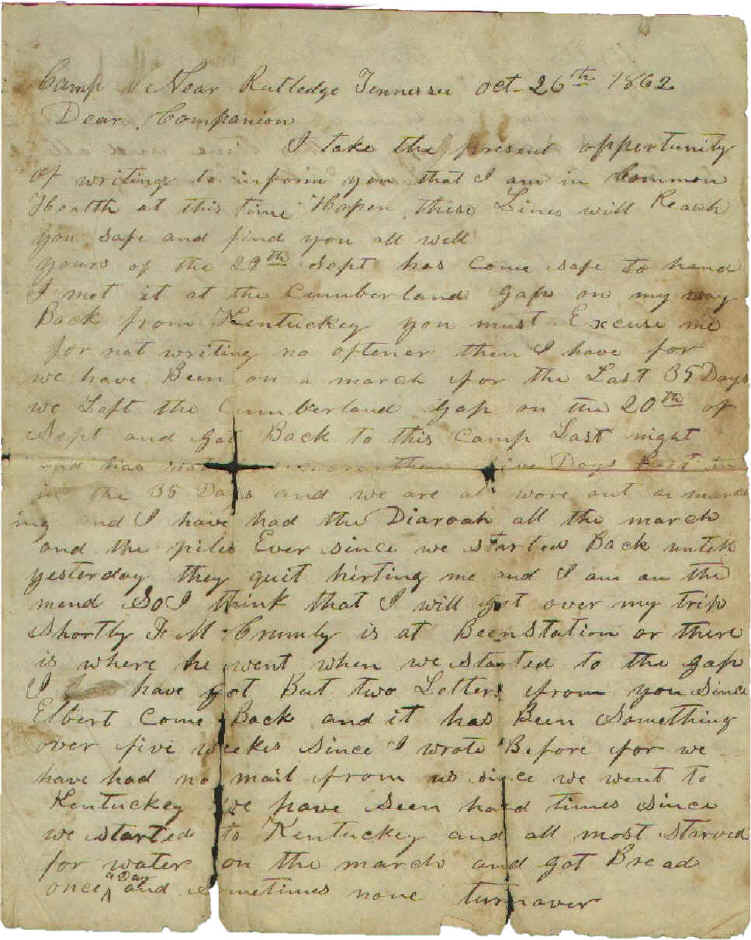 Camp Near Rutledge Tennessee Oct 26th 1862
Dear Companion
I take the present opportunity
of writing to inform you that I am in Common
Health at this time Hopen these Lines will Reach
you safe and find you all well
yours of the 29th Sept has come safe to hand
I met it at the Cumberland gap on my way
Back from Kentuckey you must Excuse me
for not writing no oftener then I have for
we have Been on a march for the Last 35 Days
we Left the Cumberland gap on the 20th of
Sept and got Back to this Camp Last night
and has not more than five Days Rest
in the 35 Days and we are all wore out a march
ing and I have had the Diaroah all the march
and the piles Ever since we started Back untill
yesterday they quit hirting me and I am on the
mend So I think that I will get over my trip
Shortly F M Crumly is at Been Station or there
is where he went when we started to the gap
I have got But two Letters from you Since
Elbert Come Back and it has Been Something
over five weekes Since I wrote Before for we
have had no mail from us since we went to
Kentuckey we have seen hard times since
we started to Kentuckey and all most starved
for water on the march and got Bread
once a Day and sometimes none turnover